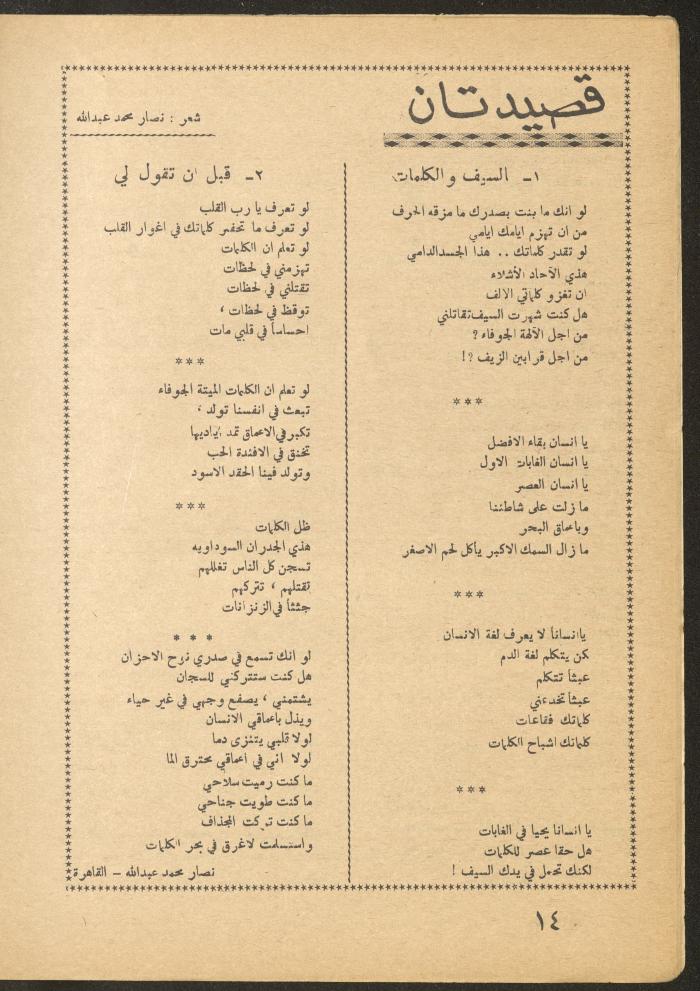 قصيدتان
شعر : نصار محمد عبدالله
١ـ السيف والكلمات
لو انك ما بنت بصدرك ما مزقه الحرف
من ان تهزم ايامك ايامي
لو تقدر كلماتك .. هذا الجسد الدامي
هذي الآحاد الأشلاء
ان تغزو كلماتي الالف
هل كنت شهرت السيف تقاتلني
من اجل الآلهة الجوفاء ؟
من اجل قرابين الزيف ؟!
***
يا انسان بقاء الافضل
يا انسان الغابات الاول
يا انسان العصر
ما زلت على شاطئنا
وباعماق البحر
ما زال السمك الاكبر يأكل لحم الاصغر
***
يا انساناً لا يعرف لغة الانسان
كن يتكلم لغة الدم
عبثاً تتكلم
عبثاً تخدعني
كلماتك فقاعات
كلماتك اشباح الكلمات
***
يا انسانا يحيا في الغابات
هل حقا عصر للكلمات
لكنك تحمل في يدك السيف !
٢ـ قبل ان تقول لي
لو تعرف يا رب القلب
لو تعرف ما تحفر كلماتك في اغوار القلب
لو تعلم ان الكلمات
تهزمني في لحظات
تقتلني في لحظات
توقظ في لحظات ،
احساساً في قلبي مات
***
لو تعلم ان الكلمات الميتة الجوفاء
تبعث في انفسنا تولد ،
تكبر في الاعماق تمد اياديها
تخنق في الافئدة الحب
وتولد فينا الحقد الاسود
***
ظل الكلمات
هذي الجدران السوداويه
تسجن كل الناس تغللهم
تقتلهم ، تتركهم
جثثاً في الزنزانات
* * *
لو انك تسمع في صدري نزح الاحزان
هل كنت ستتركني للسجان
يشتمني ، يصفع وجهي في غير حياء
ويذل باعماقي الانسان
لولا قلبي يتنزى دما
لولا اني في اعماقي محترق الما
ما كنت رميت سلاحي
ما كنت طويت جناحي
ما كنت تركت المجذاف
واستسلمت لاغرق في بحر الكلمات
نصار محمد عبدالله – القاهرة
١٤